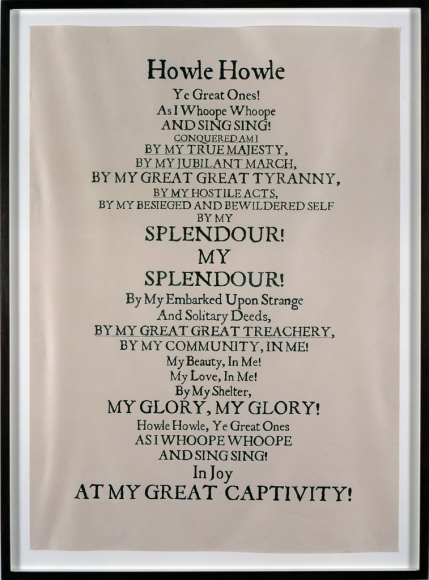 Howle Howle
Ye Great Ones!
As I Whoope Whoope
AND SING SING!
CONQUERED AM I
BY MY TRUE MAJESTY,
BY MY JUBILANT MARCH,
BY MY GREAT GREAT TYRANNY,
BY MY HOSTILE ACTS,
BY MY BESIEGED AND BEWILDERED SELF
BY MY
SPLENDOUR!
MY
SPLENDOUR!
By My Embarked Upon Strange
And Solitary Deeds,
BY MY GREAT GREAT TREACHERY,
BY MY COMMUNITY, IN ME!
My Beauty, In Me!
My Love, In Me!
By My Shelter,
MY GLORY, MY GLORY!
Howle Howle, Ye Great Ones
AS I WHOOPE WHOOPE
AND SING SING!
In Joy
AT MY GREAT CAPTIVITY!